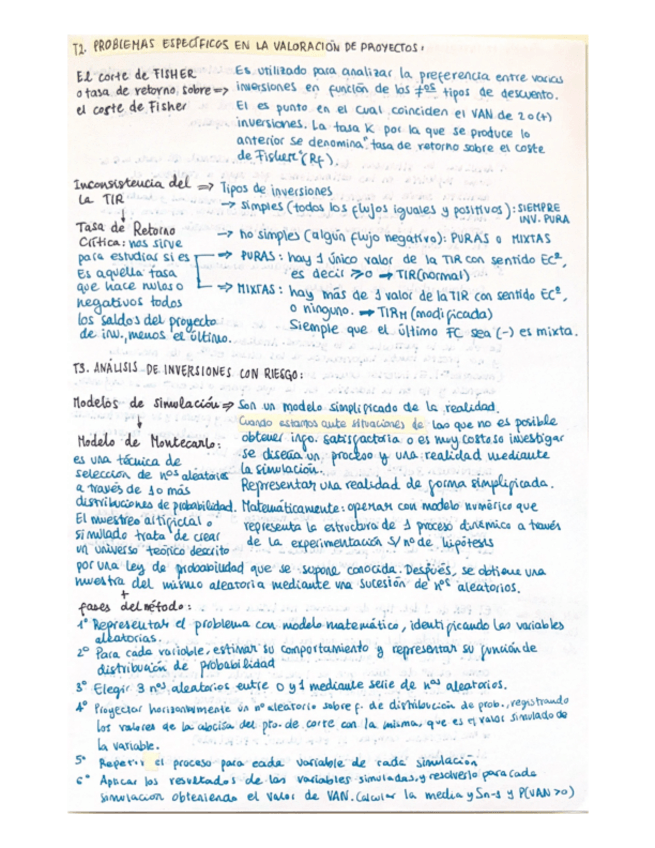 T2. PROBLEMAS ESPECÍFICOS EN LA VALORACIÓN DE PROYECTOS:
El corte de FISHER
o tasa de retorno sobre =>
el coste de Fisher
Es utilizado para analizar la preferencia entre varias
inversiones en función de los ≠es tipos de descuento.
El es punto en el cual coinciden el VAN de 2 o (+)
inversiones. La tasa K por la que se produce lo
anterior se denomina "tasa de retorno sobre el coste
de Fisher" (Rf).
Inconsistencia del => Tipos de inversiones
la TIR
→ simples (todos los flujos iguales y positivos): SIEMPRE
INV. PURA
↓
Tasa de Retorno
Crítica: nos sirve
para estudiar si es
Es aquella tasa
que hace nulos o
negativos todos
los saldos del proyecto
de inv., menos el último.
→ no simples (algún flujo negativo): PURAS o MIXTAS
→ PURAS: hay 1 único valor de la TIR con sentido Ecº,
es decir ≥0 → TIR (normal)
→ MIXTAS: hay más de 1 valor de la TIR con sentido Ecº,
o ninguno. → TIRM (modificada)
Siempre que el último FC sea (-) es mixta.
T3. ANÁLISIS DE INVERSIONES CON RIESGO:
Modelos de simulación => Son un modelo simplificado de la realidad.
↓
Cuando estamos ante situaciones de las que no es posible
obtener info. satisfactoria o es muy costoso investigar
se diseña un proceso y una realidad mediante
la simulación.
Representar una realidad de forma simplificada.
Matemáticamente: operar con modelo numérico que
representa la estructura de 1 proceso dinámico a través
de la experimentación s/ nº de hipótesis
Modelo de Montecarlo:
es una técnica de
selección de nos aleatorios
a través de 1 o más
distribuciones de probabilidad.
El muestreo artificial o
simulado trata de crear
un universo teórico descrito
por una ley de probabilidad que se supone conocida. Después, se obtiene una
muestra del mismo aleatoria mediante una sucesión de nos aleatorios.
+
fases del método:
1º Representar el problema con modelo matemático, identificando las variables
aleatorias.
2º Para cada variable, estimar su comportamiento y representar su función de
distribución de probabilidad
3º Elegir 3 nos aleatorios entre 0 y 1 mediante serie de nos aleatorios.
4º Proyectar horizontalmente un nº aleatorio sobre f. de distribución de prob., registrando
los valores de la abcisa del pto. de corte con la misma, que es el valor simulado de
la variable.
5º Repetir el proceso para cada variable de cada simulación
6º Aplicar los resultados de las variables simuladas, y resolverlo para cada
simulación obteniendo el valor de VAN. Calcular la media y Sn-1 y P(VAN>0)